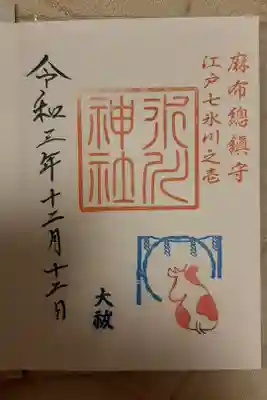 麻布總鎮守
江戸七氷川之壱
氷川
神社
大祓
令和三年十二月十二日